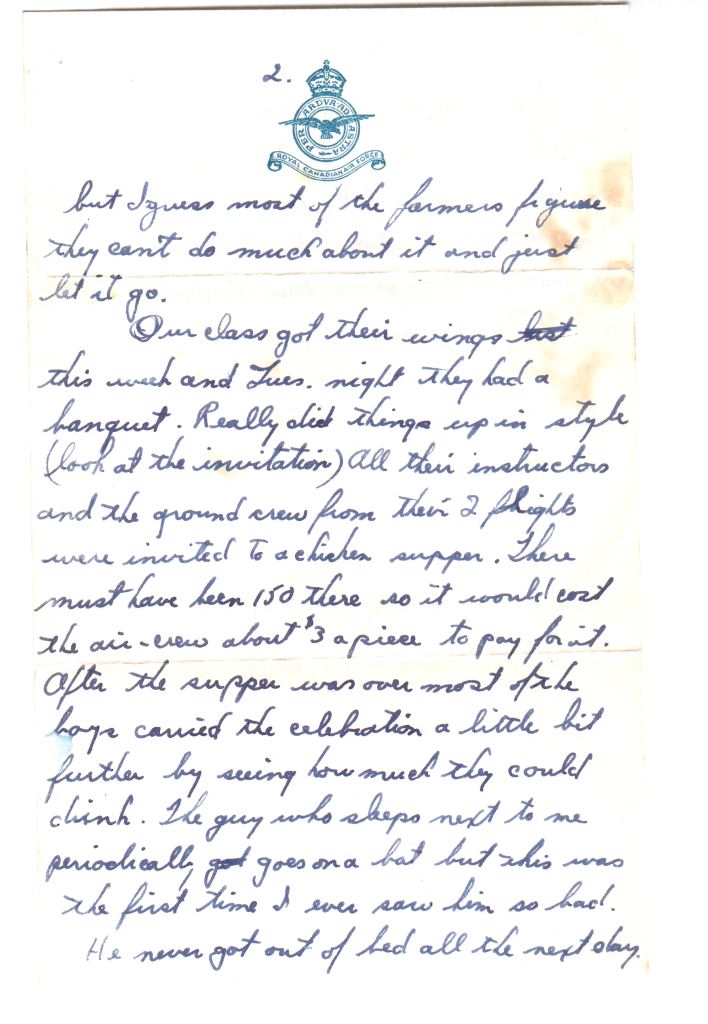 2.
PER ARDVA AD ASTRA
ROYAL CANADIAN AIR FORCE
but I guess most of the farmers figure
they can't do much about it and just
let it go.
Our class got their wings last
this week and Tues. night they had a
banquet. Really did things up in style
(look at the invitation) All their instructors
and the ground crew from their 2 flights
were invited to a chicken supper. There
must have been 150 there so it would cost
the air-crew about $3 apiece to pay for it.
After the supper was over most of the
boys carried the celebration a little bit
further by seeing how much they could
drink. The guy who sleeps next to me
periodically got goes on a bat but this was
the first time I ever saw him so bad.
He never got out of bed all the next day.